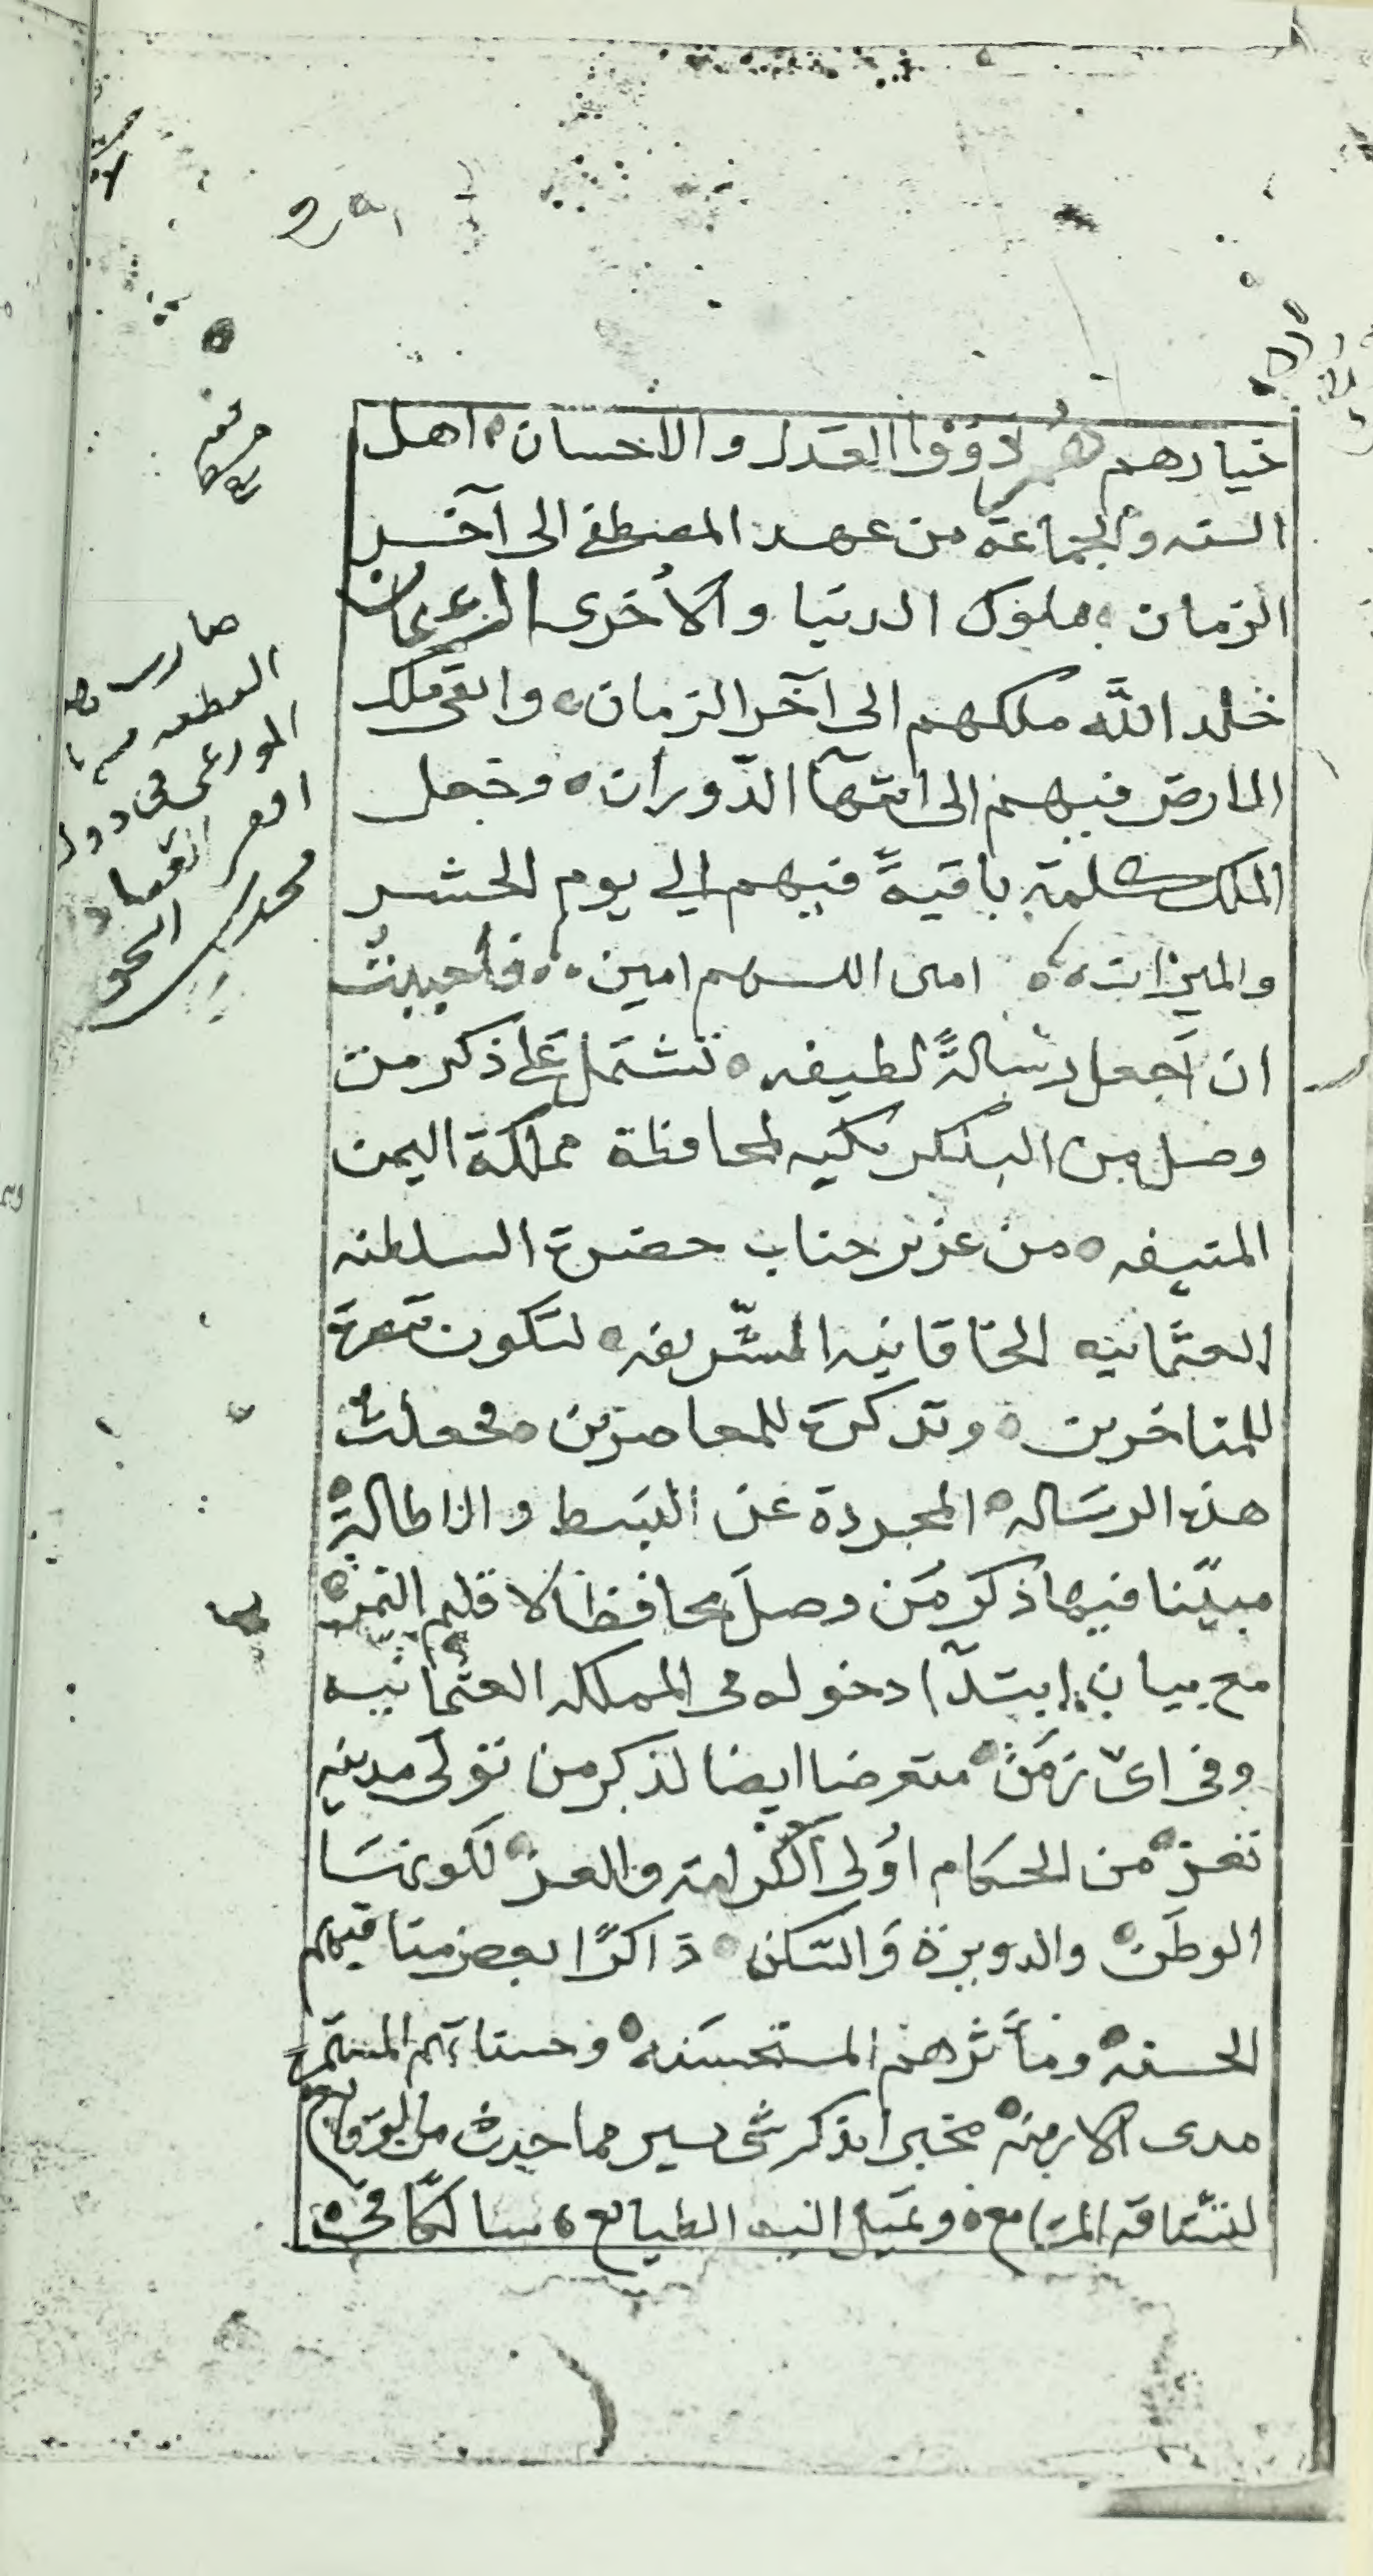 خيارهم هم ذووا العدل والاحسان اهل
السنه والجماعة من عهد المصطفى الى آخر
الزمان ملوك الدنيا والأخرى ال عثمان
خلد الله ملكهم الى آخر الزمان وابقى ملك
الارض فيهم الى انتهآ الدّوران وجعل
الملك كلمة باقيةً فيهم الي يوم الحشر
والميزان امين اللهم امين فاحببتُ
ان اَجعل رسالةً لطيفه تشتمل على ذكر من
وصل من البكلربكيه لمحافظة مملكة اليمن
المنيفه من عزيز جناب حضرة السلطنه
العثمانيه الخاقانيه الشّريفه لتكون تبصرة
للمتاخرين وتذكرة للمعاصرين فجعلتُ
هذه الرسَاله المجردة عن البسط والاطالة
مبيّنا فيها ذكر مَن وصلَ محافظا لاقليم اليمن
مع بيان ابتدآ دخوله فى المملكه العثمانيه
وفى اىّ زمَن متعرضا ايضا لذكر من تولى مدينه
تعز من الحكام اوُلى الكرامة والعز لكونها
الوطَن والدويرة وَالسّكن ذاكرًا بعض مناقبهم
الحسنه ومآثرهم المستحسَنه وحسناتهم المستمرة
مدى الازمنه مخبرا بذكر شى يسير مما حدث من الوقايع
لتشتاقه المسَامع وتميل اليه الطبايع سالكًا فى
صارت
فى
محمد